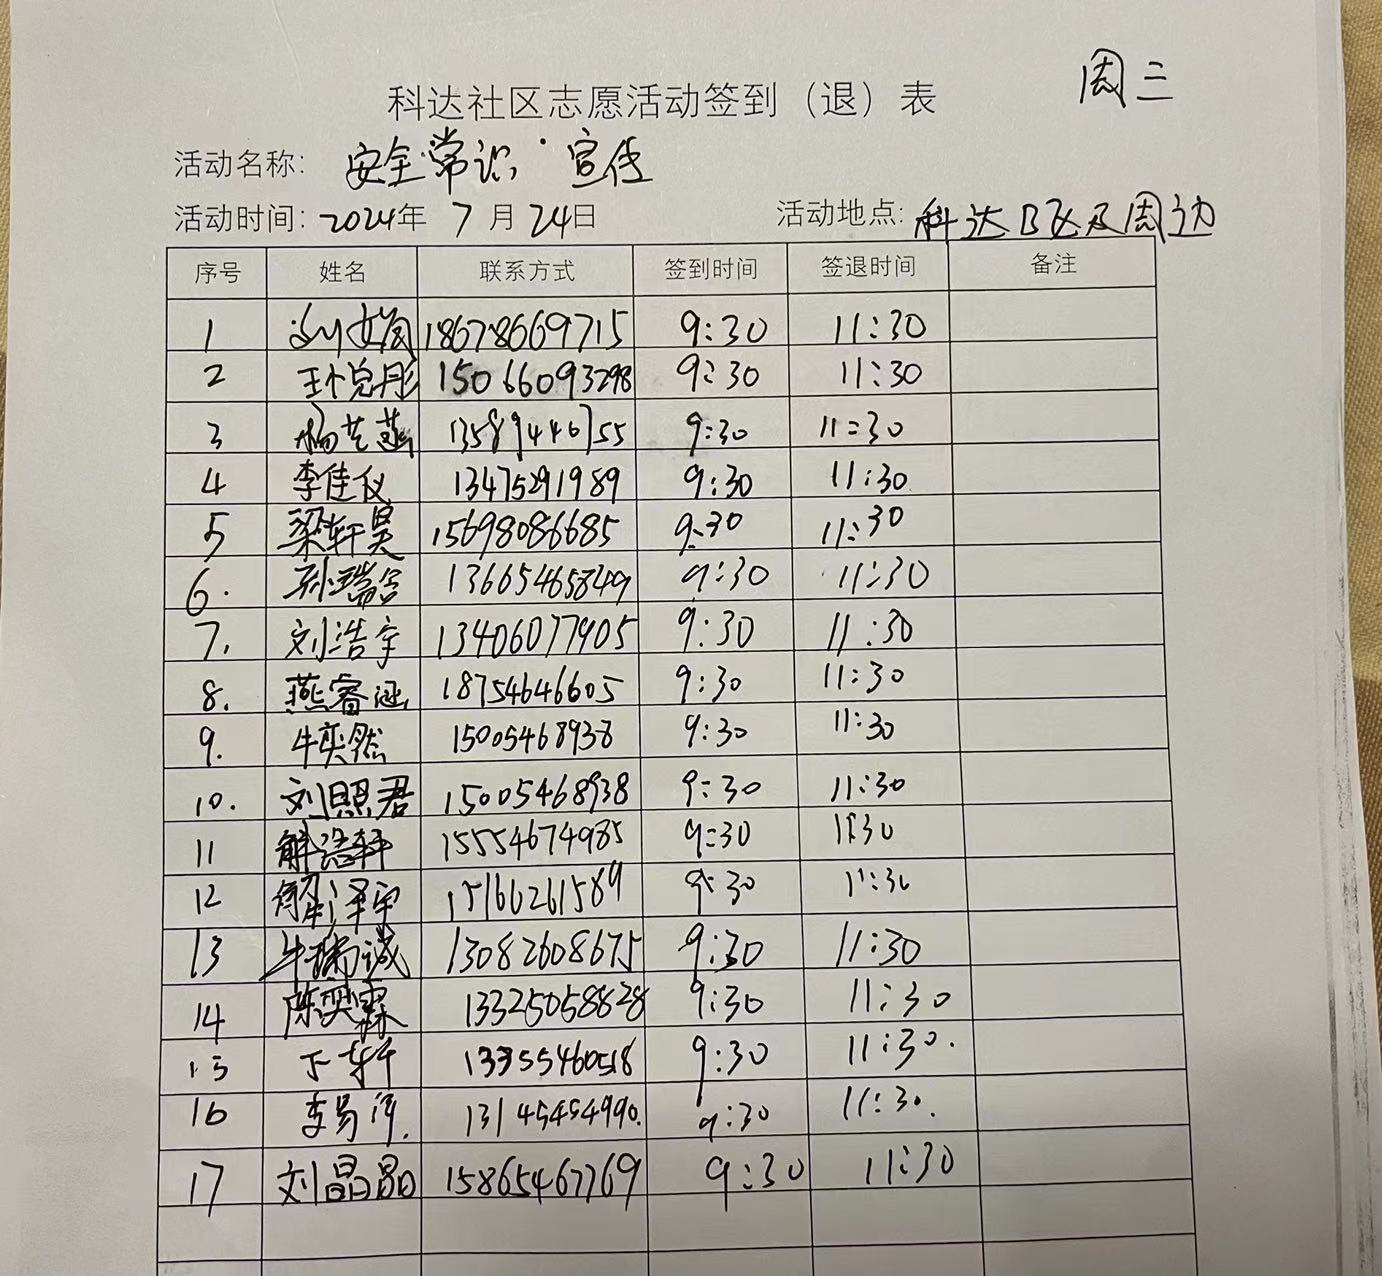 周三
科达社区志愿活动签到（退）表
活动名称: 安全常识·宣传
活动时间: 2024年 7 月 24日 活动地点: 科达B区及周边
序号 姓名 联系方式 签到时间 签退时间 备注
1 刘娟 18678669715 9:30 11:30
2 15066093298 9:30 11:30
3 杨艺菡 13589446755 9:30 11:30
4 李佳仪 13475291989 9:30 11:30
5 梁轩昊 15698086685 9:30 11:30
6. 孙瑞含 13665465849 9:30 11:30
7. 刘浩宇 13406077905 9:30 11:30
8. 燕睿涵 18754646605 9:30 11:30
9. 牛奕然 15005468938 9:30 11:30
10. 刘照君 15005468938 9:30 11:30
11 解浩轩 15554674985 9:30 11:30
12 解泽宇 15166261589 9:30 11:30
13 牛瑞诚 13082608675 9:30 11:30
14 陈奕霖 13325058828 9:30 11:30
15 丁轩 13355460518 9:30 11:30.
16 李易泽. 13145454990. 9:30 11:30.
17 刘晶晶 15865467769 9:30 11:30